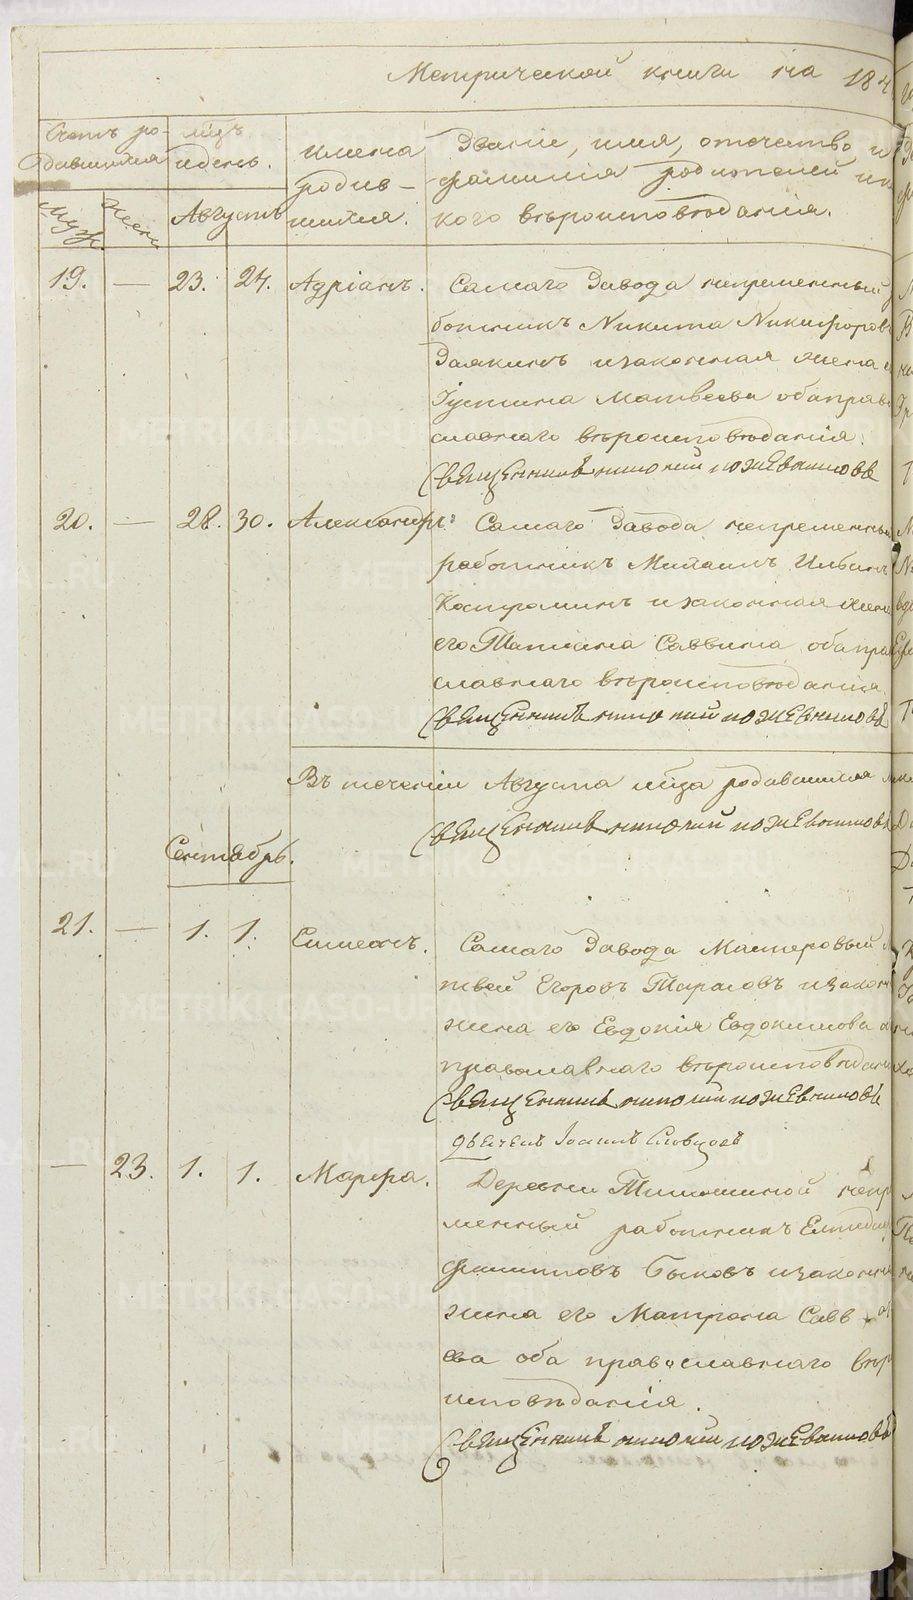 Метрической книги на 184
Счетъ ро-
дившихся
мѣцъ
и день.
Имена
родив-
шихся.
Званіе, имя, отечество и
фамилія родителей и ка
кого вѣроисповѣданія.
Муж.
Женс
Августъ
19. — 23. 24. Адріанъ. Самаго Завода непременный
ботникъ Никита Никифоров
изаконная жена е
Іустина Матвеева оба прав
славнаго вѣроисповѣданія.
Священникъ николай кожевниковъ
20. — 28. 30. Александръ: Самаго Завода непременны
работникъ Михаилъ Ильинъ
Костроминъ и законная жена
его Татиана Саввина оба пра
славнаго вѣроисповѣданія
Священникъ николай кожевниковъ
Въ течении Августа мца родившихся
Священникъ николай кожевниковъ
Сентябрь.
21. — 1. 1. Симеонъ. Самаго Завода Мастеровый
твей Егоровъ Тарасовъ и закон
жена его Евдокія Евдокимова о
православнаго вѣроисповѣдан
Священникъ николай кожевниковъ
дьячекъ Іоаннъ Словцовъ
— 23. 1. 1. Марѳа. Деревни непр
менный работникъ
Филиповъ Быковъ и законн
жена его Матрона Савв
ева оба православнаго вѣр
исповѣданія.
Священникъ николай кожевниковъ
METRIKI.GASO-URAL.RU